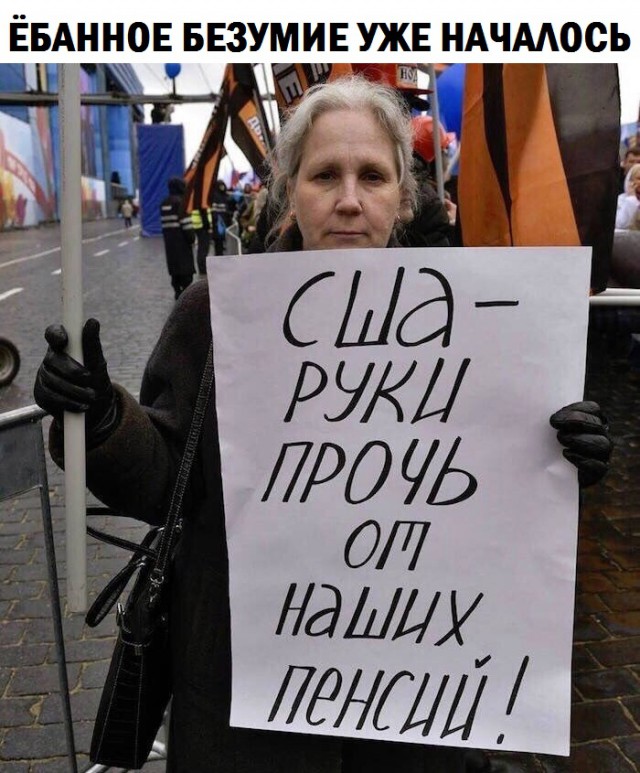 ЁБАННОЕ БЕЗУМИЕ УЖЕ НАЧАЛОСЬ
США –
РУКИ
ПРОЧЬ
ОТ
наших
пенсий!